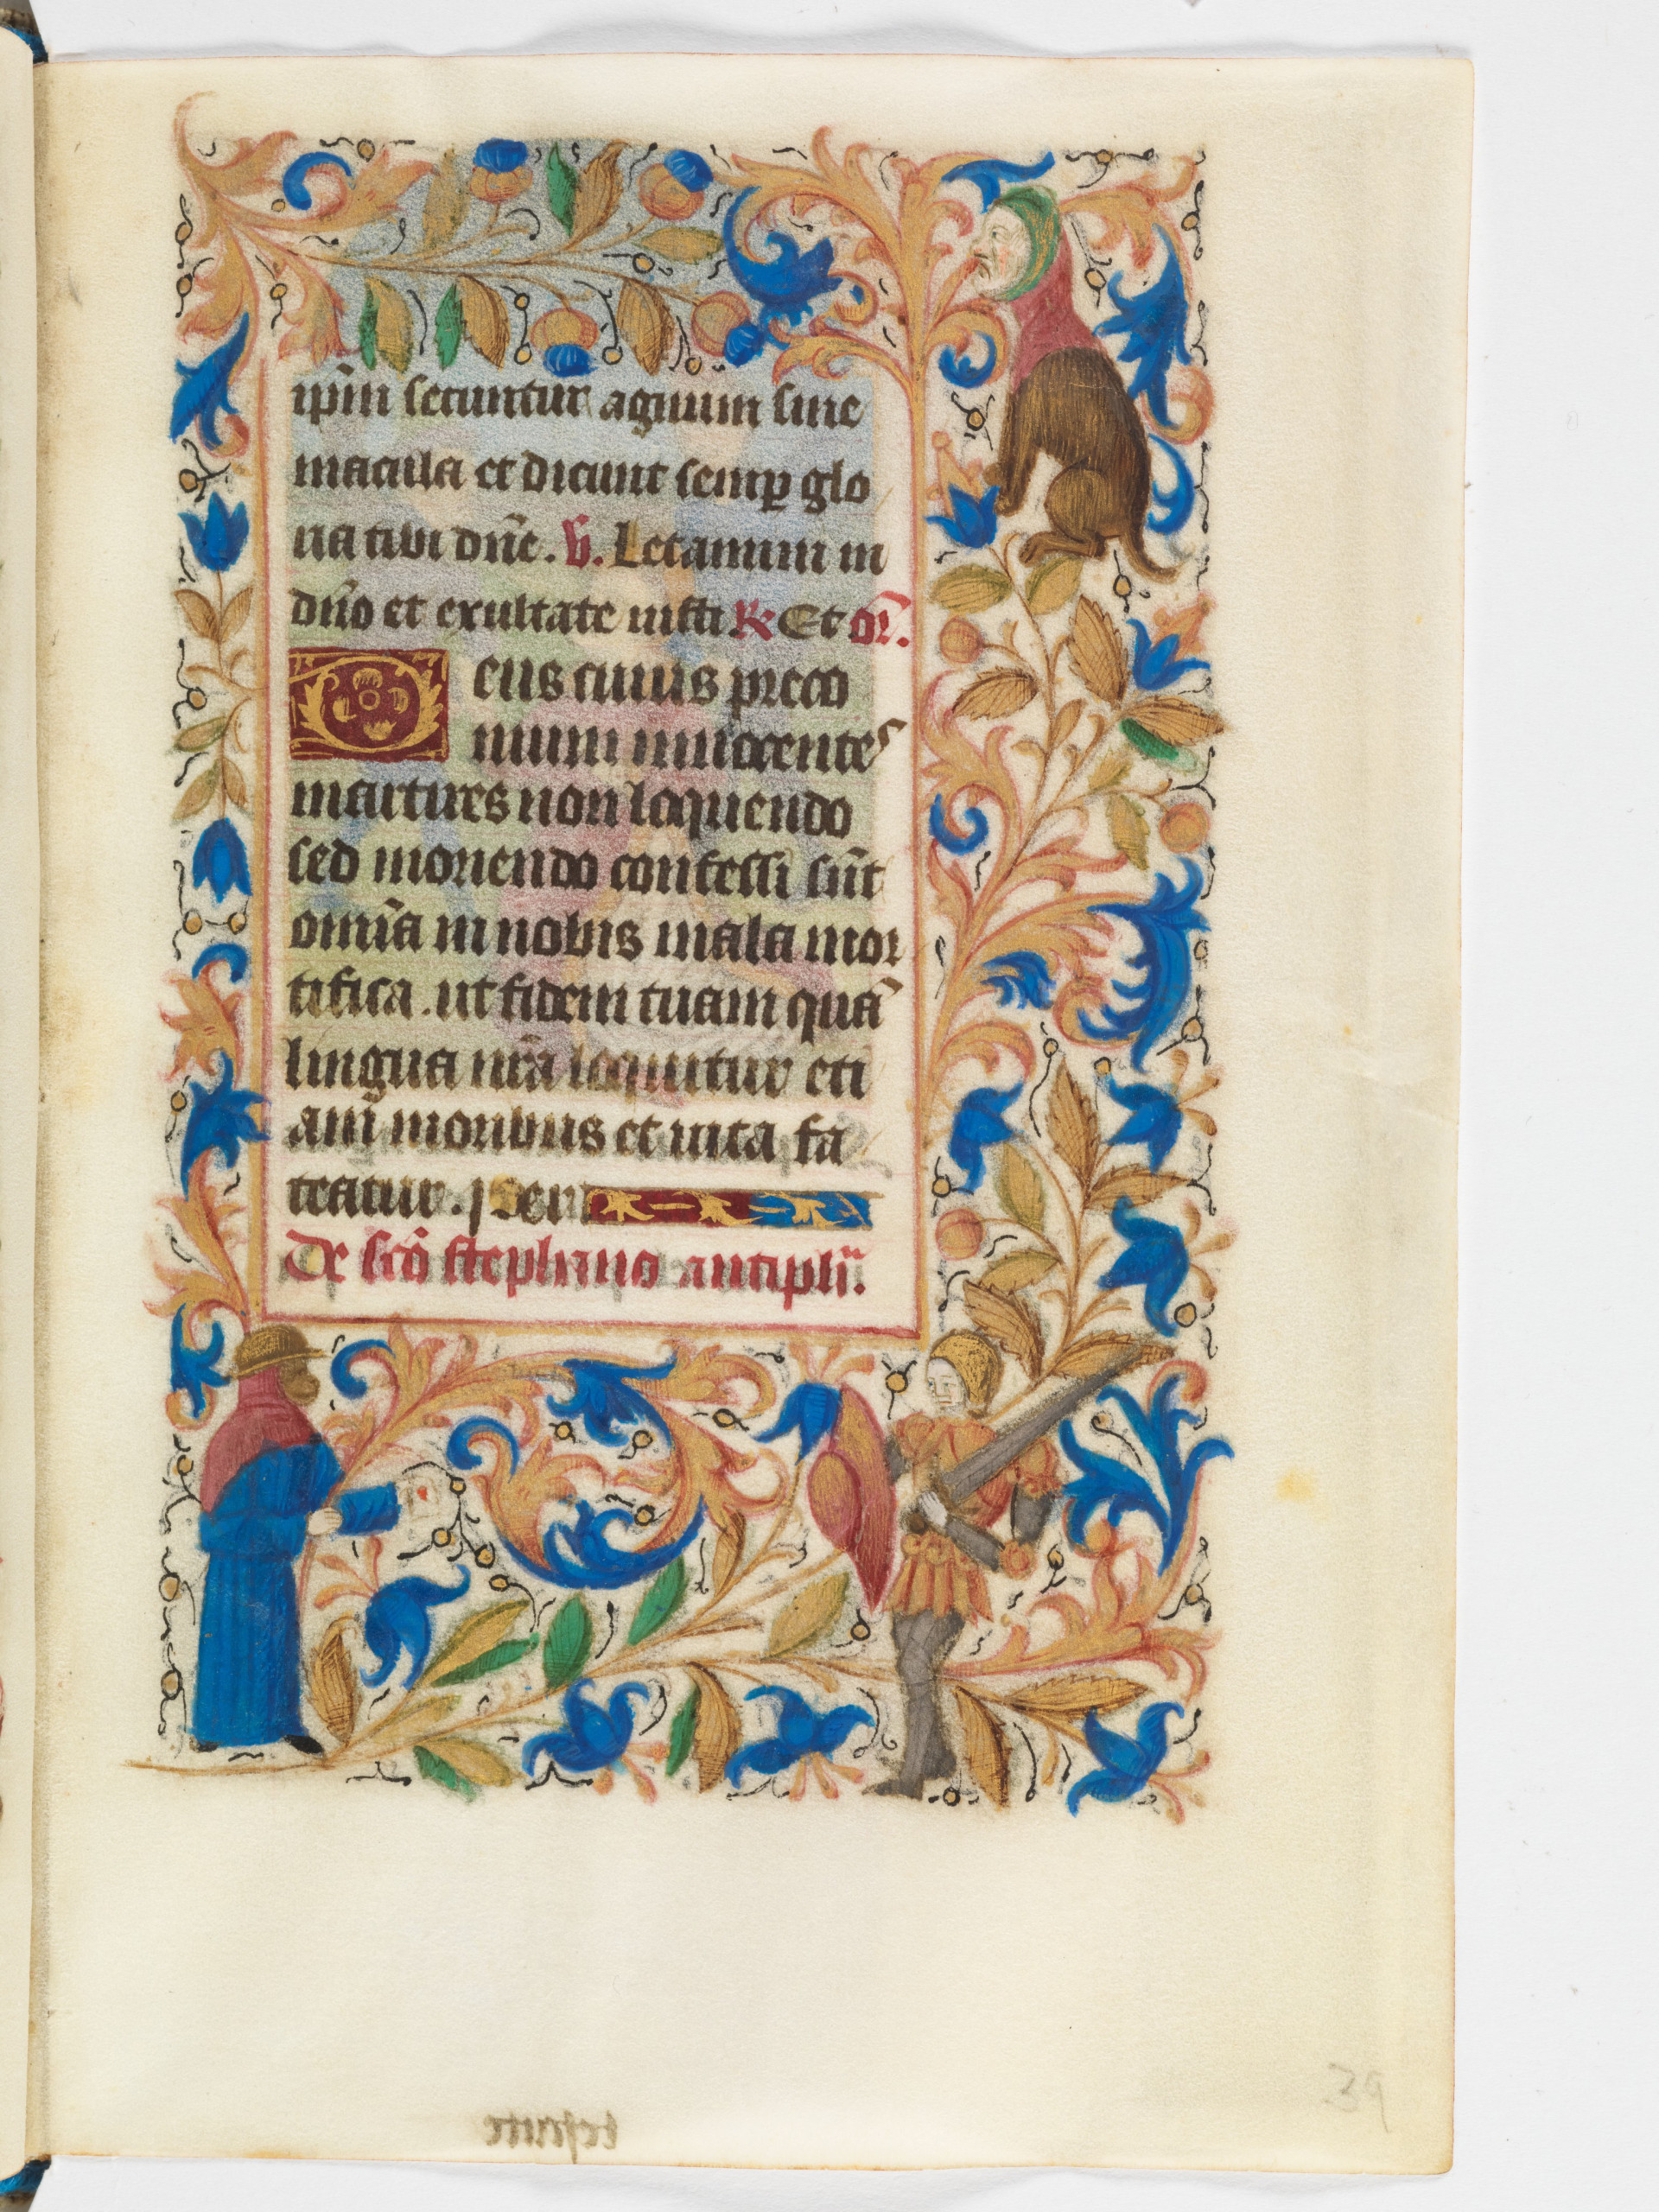 ip̄m secuntur agnum sine
macula et dicunt semp glo
ria tibi dn̄e. v̄. Letamini in
dn̄o et exultate iusti R Et or̄.
Deus cuius preco
nium innocentes
martires non loquendo
sed moriendo confessi sūt
omīa in nobis mala mor
tifica. ut fidem tuam quā
lingua nr̄a loquitur eti
am moribus et vita fa
teatur. Per
De sc̄o stephano antiph̄.
39